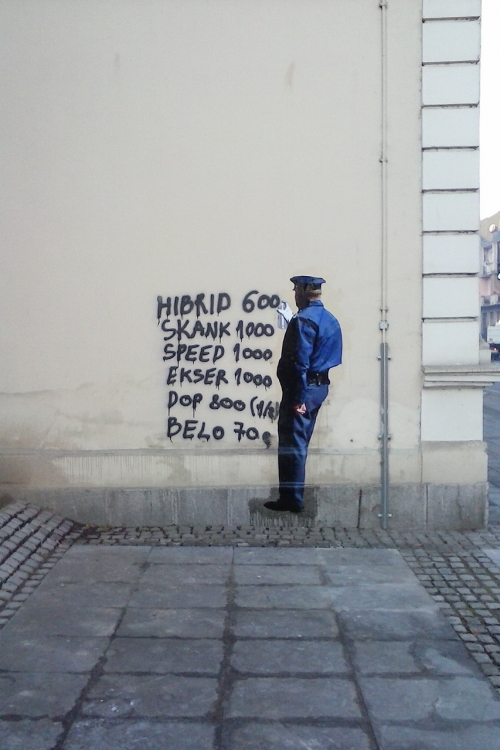 HIBRID 600
SKANK 1000
SPEED 1000
EKSER 1000
DOP 800 (1/2)
BELO 70€